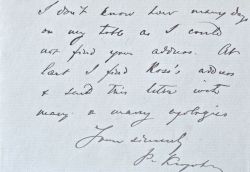 I don't know how many days
on my table as I could
not find your address. At
last I find Rose's address
& send this letter with
many & many apologies
Yours sincerely